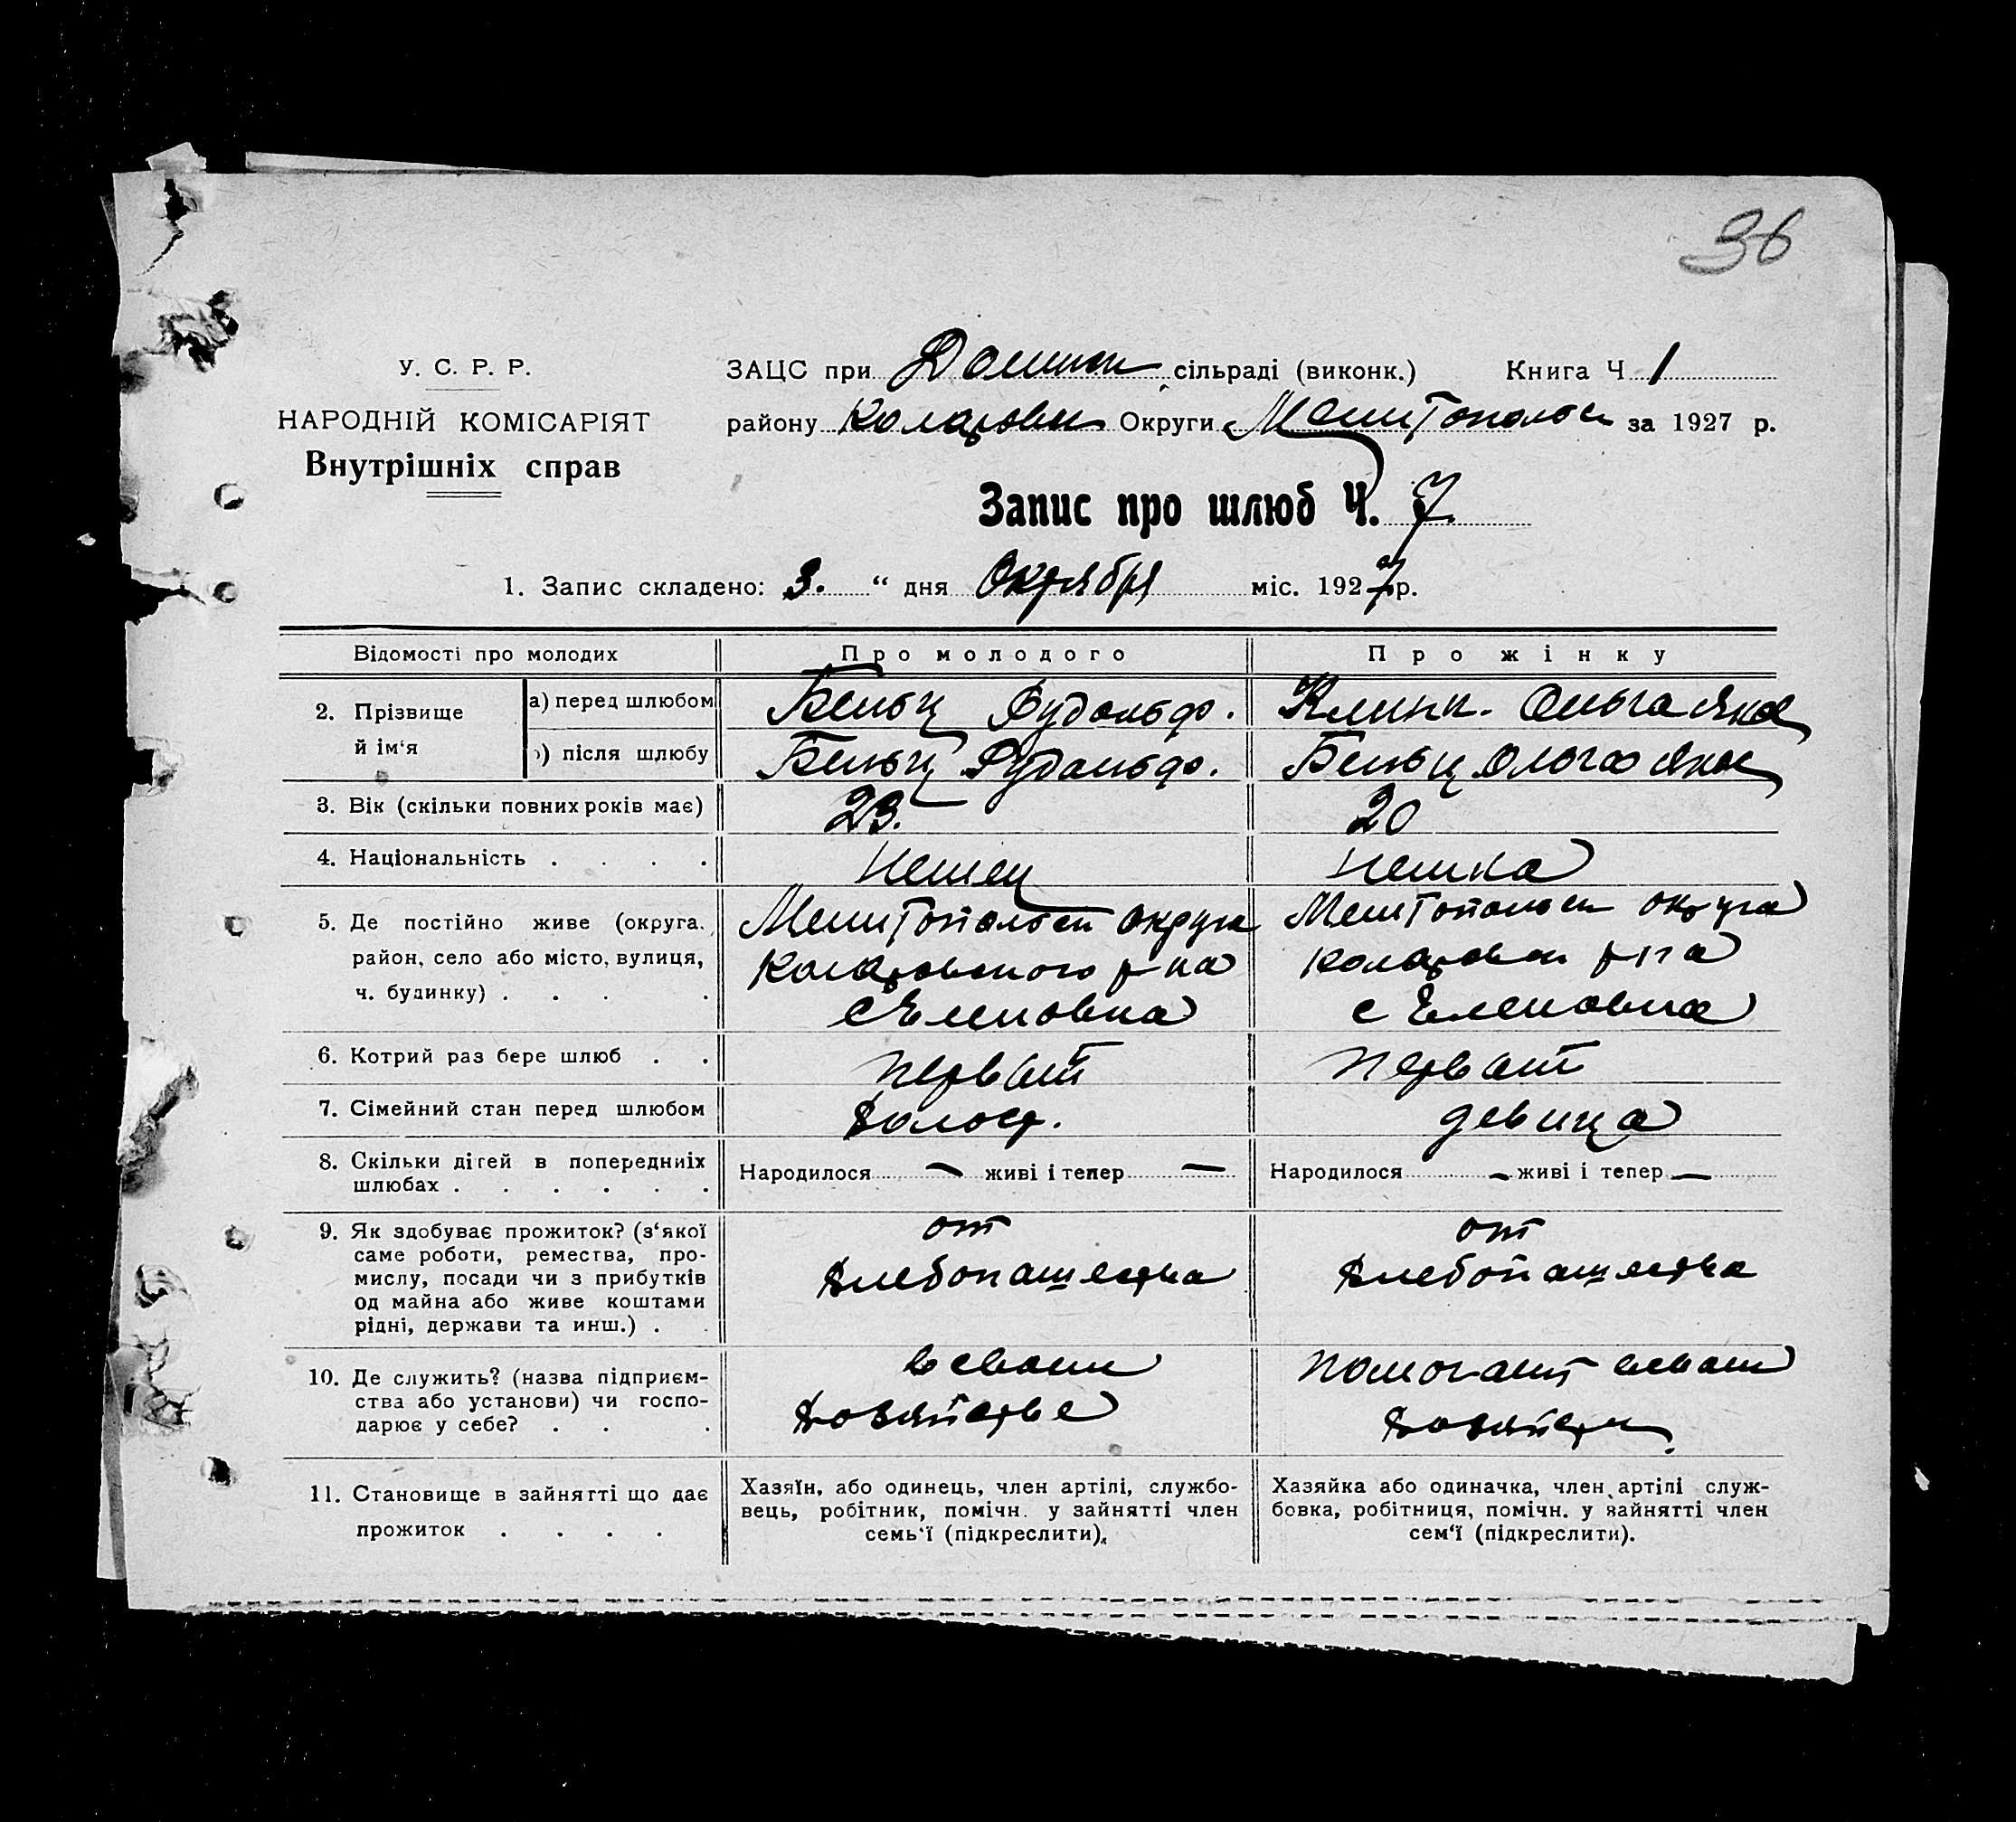 36
У. С. Р. Р.
НАРОДНІЙ КОМІСАРІЯТ
Внутрішніх справ
ЗАЦС при Долинск сільраді (виконк.) Книга Ч 1
району Коларовск Округи Мелитопольск за 1927 р.
Запис про шлюб Ч. 7
1. Запис складено: 3. “ дня Октября міс. 1927 р.
Відомості про молодих
Про молодого
Про жінку
2. Прізвище й ім‘я
а) перед шлюбом
Бельц Рудольф.
Клинк. Ольга Яков
б) після шлюбу
Бельц Рудольф.
Бельц Ольга Яков
3. Вік (скільки повних років має)
23.
20
4. Національність . . . .
Немец
Немка
5. Де постійно живе (округа,
район, село або місто, вулиця,
ч. будинку) . . . .
Мелитопольской округи
Коларовского р-на
с Еленовка
Мелитопольск округа
Коларовск р-на
с Еленовка
6. Котрий раз бере шлюб . .
первый
первый
7. Сімейний стан перед шлюбом
Холост.
девица
8. Скільки дітей в попередниіх
шлюбах . . . . . .
Народилося — живі і тепер —
Народилося — живі і тепер —
9. Як здобуває прожиток? (з‘якої
саме роботи, ремества, про-
мислу, посади чи з прибутків
од майна або живе коштами
рідні, держави та инш.) . .
от
Хлебопашества
от
Хлебопашества
10. Де служить? (назва підприєм-
ства або установи) чи госпо-
дарює у себе? . . .
в своем
Хозяйстве
помогает в своем
Хозяйств.
11. Становище в зайнятті що дає
прожиток . . . .
Хазяїн, або одинець, член артілі, службо-
вець, робітник, помічн. у зайнятті член
семь‘ї (підкреслити).
Хазяйка або одиначка, член артілі служ-
бовка, робітниця, помічн. у зайнятті член
сем‘ї (підкреслити).